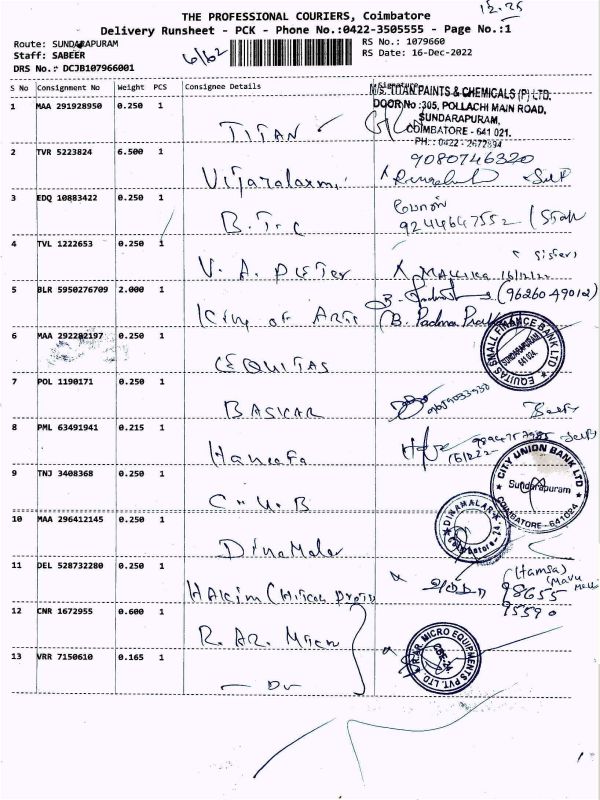 THE PROFESSIONAL COURIERS, Coimbatore
Delivery Runsheet - PCK - Phone No.:0422-3505555 - Page No.:1
Route: SUNDARAPURAM
RS No.: 1079660
Staff: SABEER
RS Date: 16-Dec-2022
DRS No.: DCJB107966001
S No Consignment No Weight PCS Consignee Details Signature
M/s. TITAN PAINTS & CHEMICALS (P) LTD.
DOOR No :305, POLLACHI MAIN ROAD,
SUNDARAPURAM,
COIMBATORE - 641 021.
PH.: 0422 - 2672894
1 MAA 291928950 0.250 1 TITAN
9080746320
2 TVR 5223824 6.500 1
3 EDQ 10883422 0.250 1 B.T.C
9244647552
4 TVL 1222653 0.250 1 V. A. PIETER
(Sister)
MALLIKA 16/12/22
5 BLR 5950276709 2.000 1 King of Arts
(9626049012)
6 MAA 292282197 0.250 1 EQUITAS
EQUITAS SMALL FINANCE BANK LTD
SUNDARAPURAM
641 024.
7 POL 1190171 0.250 1 BASKAR
8 PML 63491941 0.215 1 Haneefa
9 TNJ 3408368 0.250 1 C.U.B
CITY UNION BANK LTD
Sundarapuram
COIMBATORE - 641024
10 MAA 296412145 0.250 1 DinaMalar
DINAMALAR
Coimbatore-24.
11 DEL 528732280 0.250 1 HAKIM
(Hamsa)
98655
95590
12 CNR 1672955 0.600 1 R.AR. Micro
R.AR MICRO EQUIPMENTS PVT. LTD
CBE-24
13 VRR 7150610 0.165 1 - Do